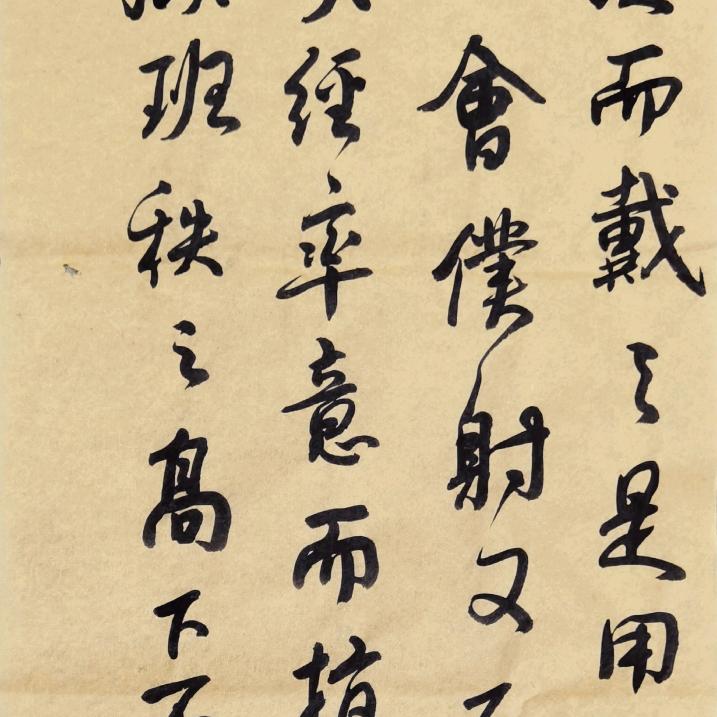 而戴之是用
會僕射又不
經率意而指
班秩之高下不